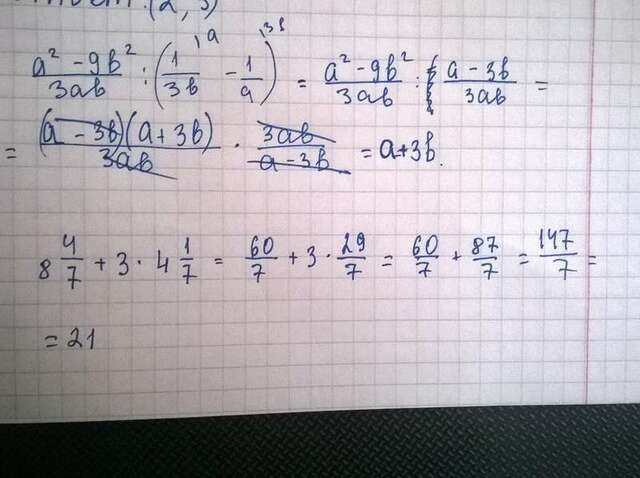 (2, 3)
a² - 9b² / 3ab : (1 / 3b - 1 / a) = a² - 9b² / 3ab : a - 3b / 3ab =
= (a - 3b)(a + 3b) / 3ab · 3ab / a - 3b = a + 3b.
8 4/7 + 3 · 4 1/7 = 60/7 + 3 · 29/7 = 60/7 + 87/7 = 147/7 =
= 21